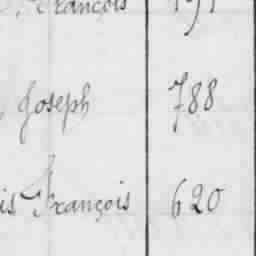 François 191
Joseph 788
is François 620